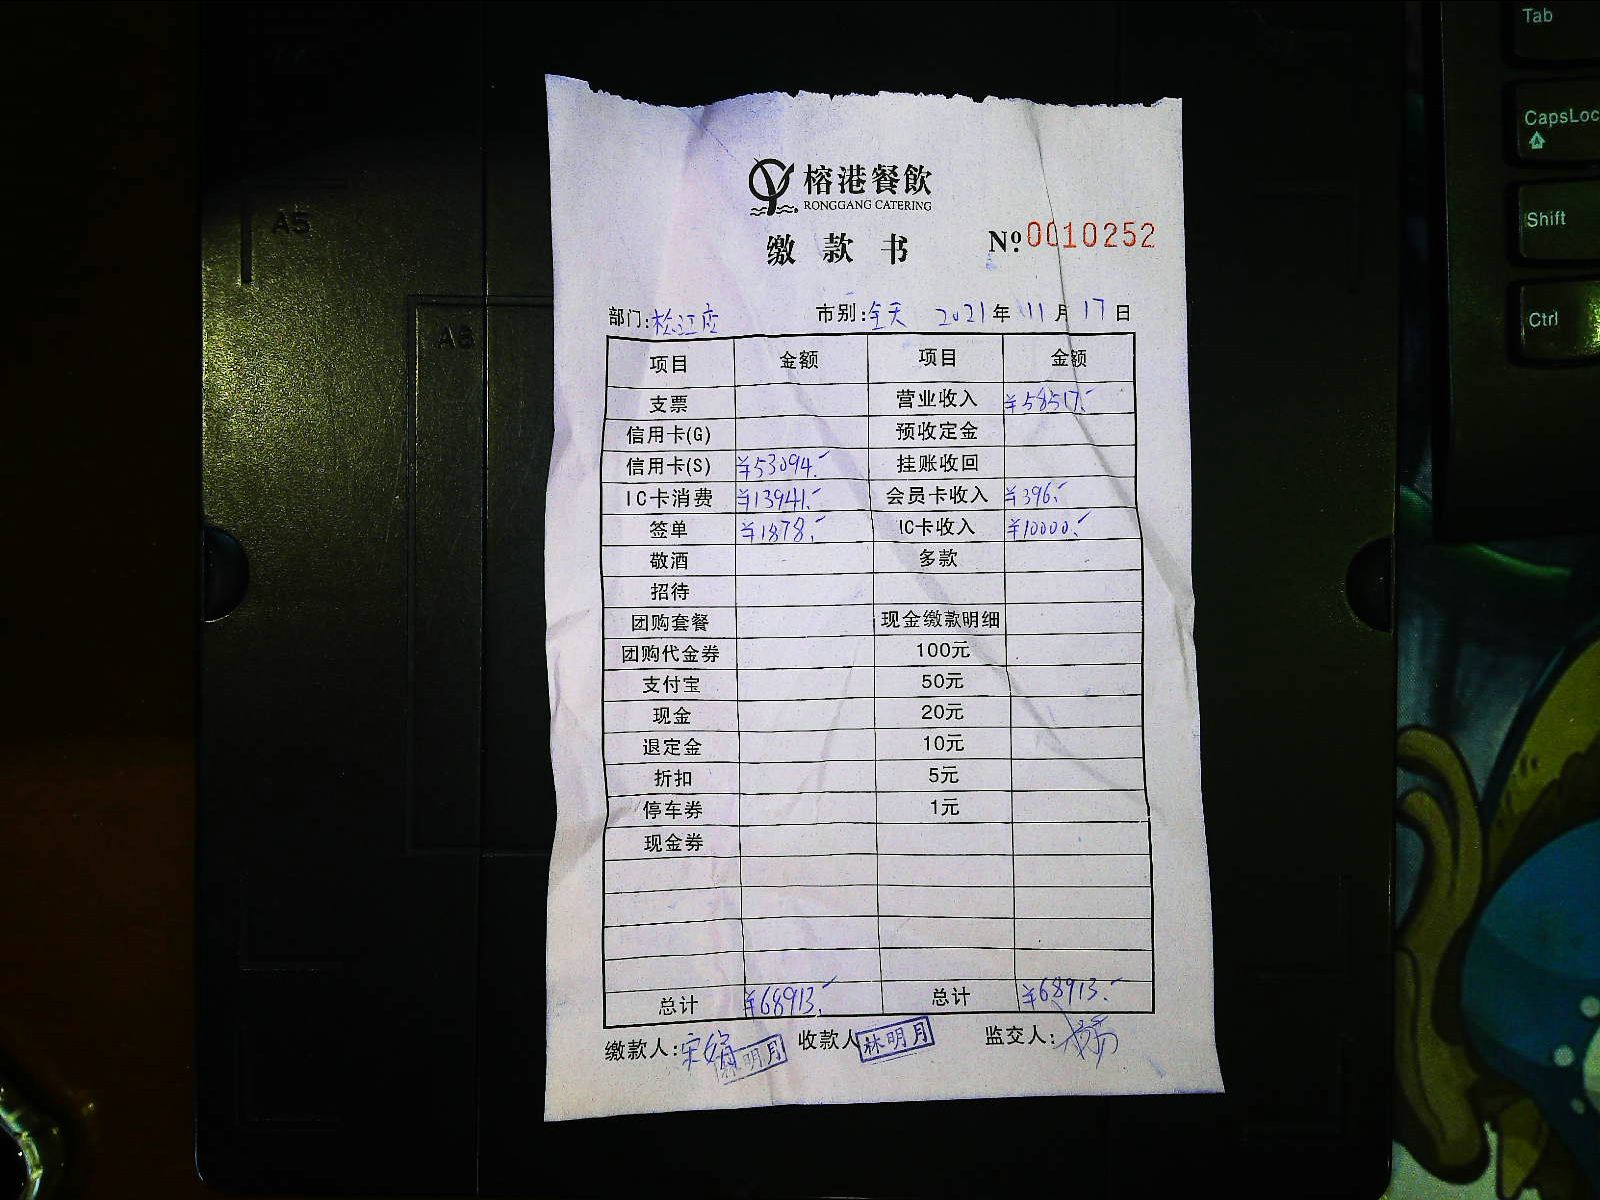 榕港餐飲
RONGGANG CATERING
缴款书 №0010252
部门:松江店 市别:全天 2021年11月17日
项目 金额 项目 金额
支票 营业收入 ¥58517.-
信用卡(G) 预收定金
信用卡(S) ¥53094.- 挂账收回
IC卡消费 ¥13941.- 会员卡收入 ¥396.-
签单 ¥1878.- IC卡收入 ¥10000.-
敬酒 多款
招待
团购套餐 现金缴款明细
团购代金券 100元
支付宝 50元
现金 20元
退定金 10元
折扣 5元
停车券 1元
现金券
总计 ¥68913.- 总计 ¥68913.-
缴款人:宋娟 林明月 收款人 林明月 监交人:
A5
A6
Tab
CapsLoc
Shift
Ctrl